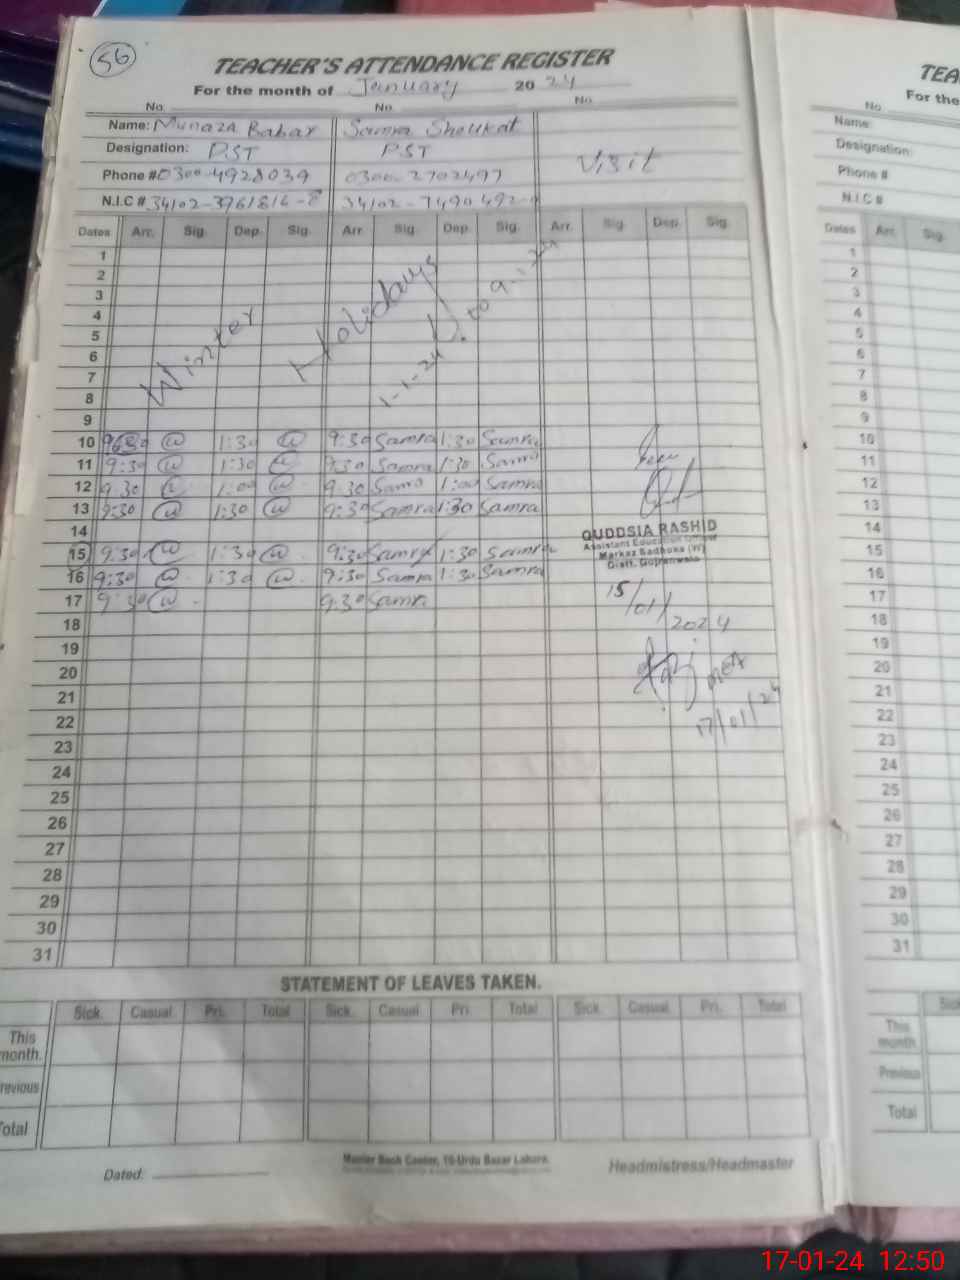 56
TEACHER'S ATTENDANCE REGISTER
For the month of January 2024
No. No. No.
Name: Munaza Babar Samra Shoukat
Designation: PST PST Visit
Phone # 0300-4928039 0300-2702497
N.I.C # 34102-3961816-8 34102-7490492-
Dates Arr. Sig. Dep. Sig. Arr. Sig. Dep. Sig. Arr. Sig. Dep. Sig.
1
2
3
4
5
6
7
8
Winter Holidays 1-1-24 to 9-1-24
9
10 9:30 1:30 9:30 Samra 1:30 Samra
11 9:30 1:30 9:30 Samra 1:30 Samra
12 9:30 1:00 9:30 Samra 1:00 Samra
13 9:30 1:30 9:30 Samra 1:30 Samra
14
QUDDSIA RASHID
Assistant Education Officer
Markaz Sadhoke (W)
Distt. Gujranwala
15 9:30 1:30 9:30 Samra 1:30 Samra
16 9:30 1:30 9:30 Samra 1:30 Samra
17 9:30 9:30 Samra
15/01/2024
18
19
20
21
17/01/24
22
23
24
25
26
27
28
29
30
31
STATEMENT OF LEAVES TAKEN.
Sick. Casual Pri. Total Sick. Casual Pri. Total Sick. Casual Pri. Total
This month.
Previous
Total
Dated:
Master Book Center, 10-Urdu Bazar Lahore.
Headmistress/Headmaster
TEA
No.
For the
Name:
Designation:
Phone #
N.I.C #
Dates Arr. Sig.
1
2
3
4
5
6
7
8
9
10
11
12
13
14
15
16
17
18
19
20
21
22
23
24
25
26
27
28
29
30
31
Sick
This month
Previous
Total
17-01-24 12:50